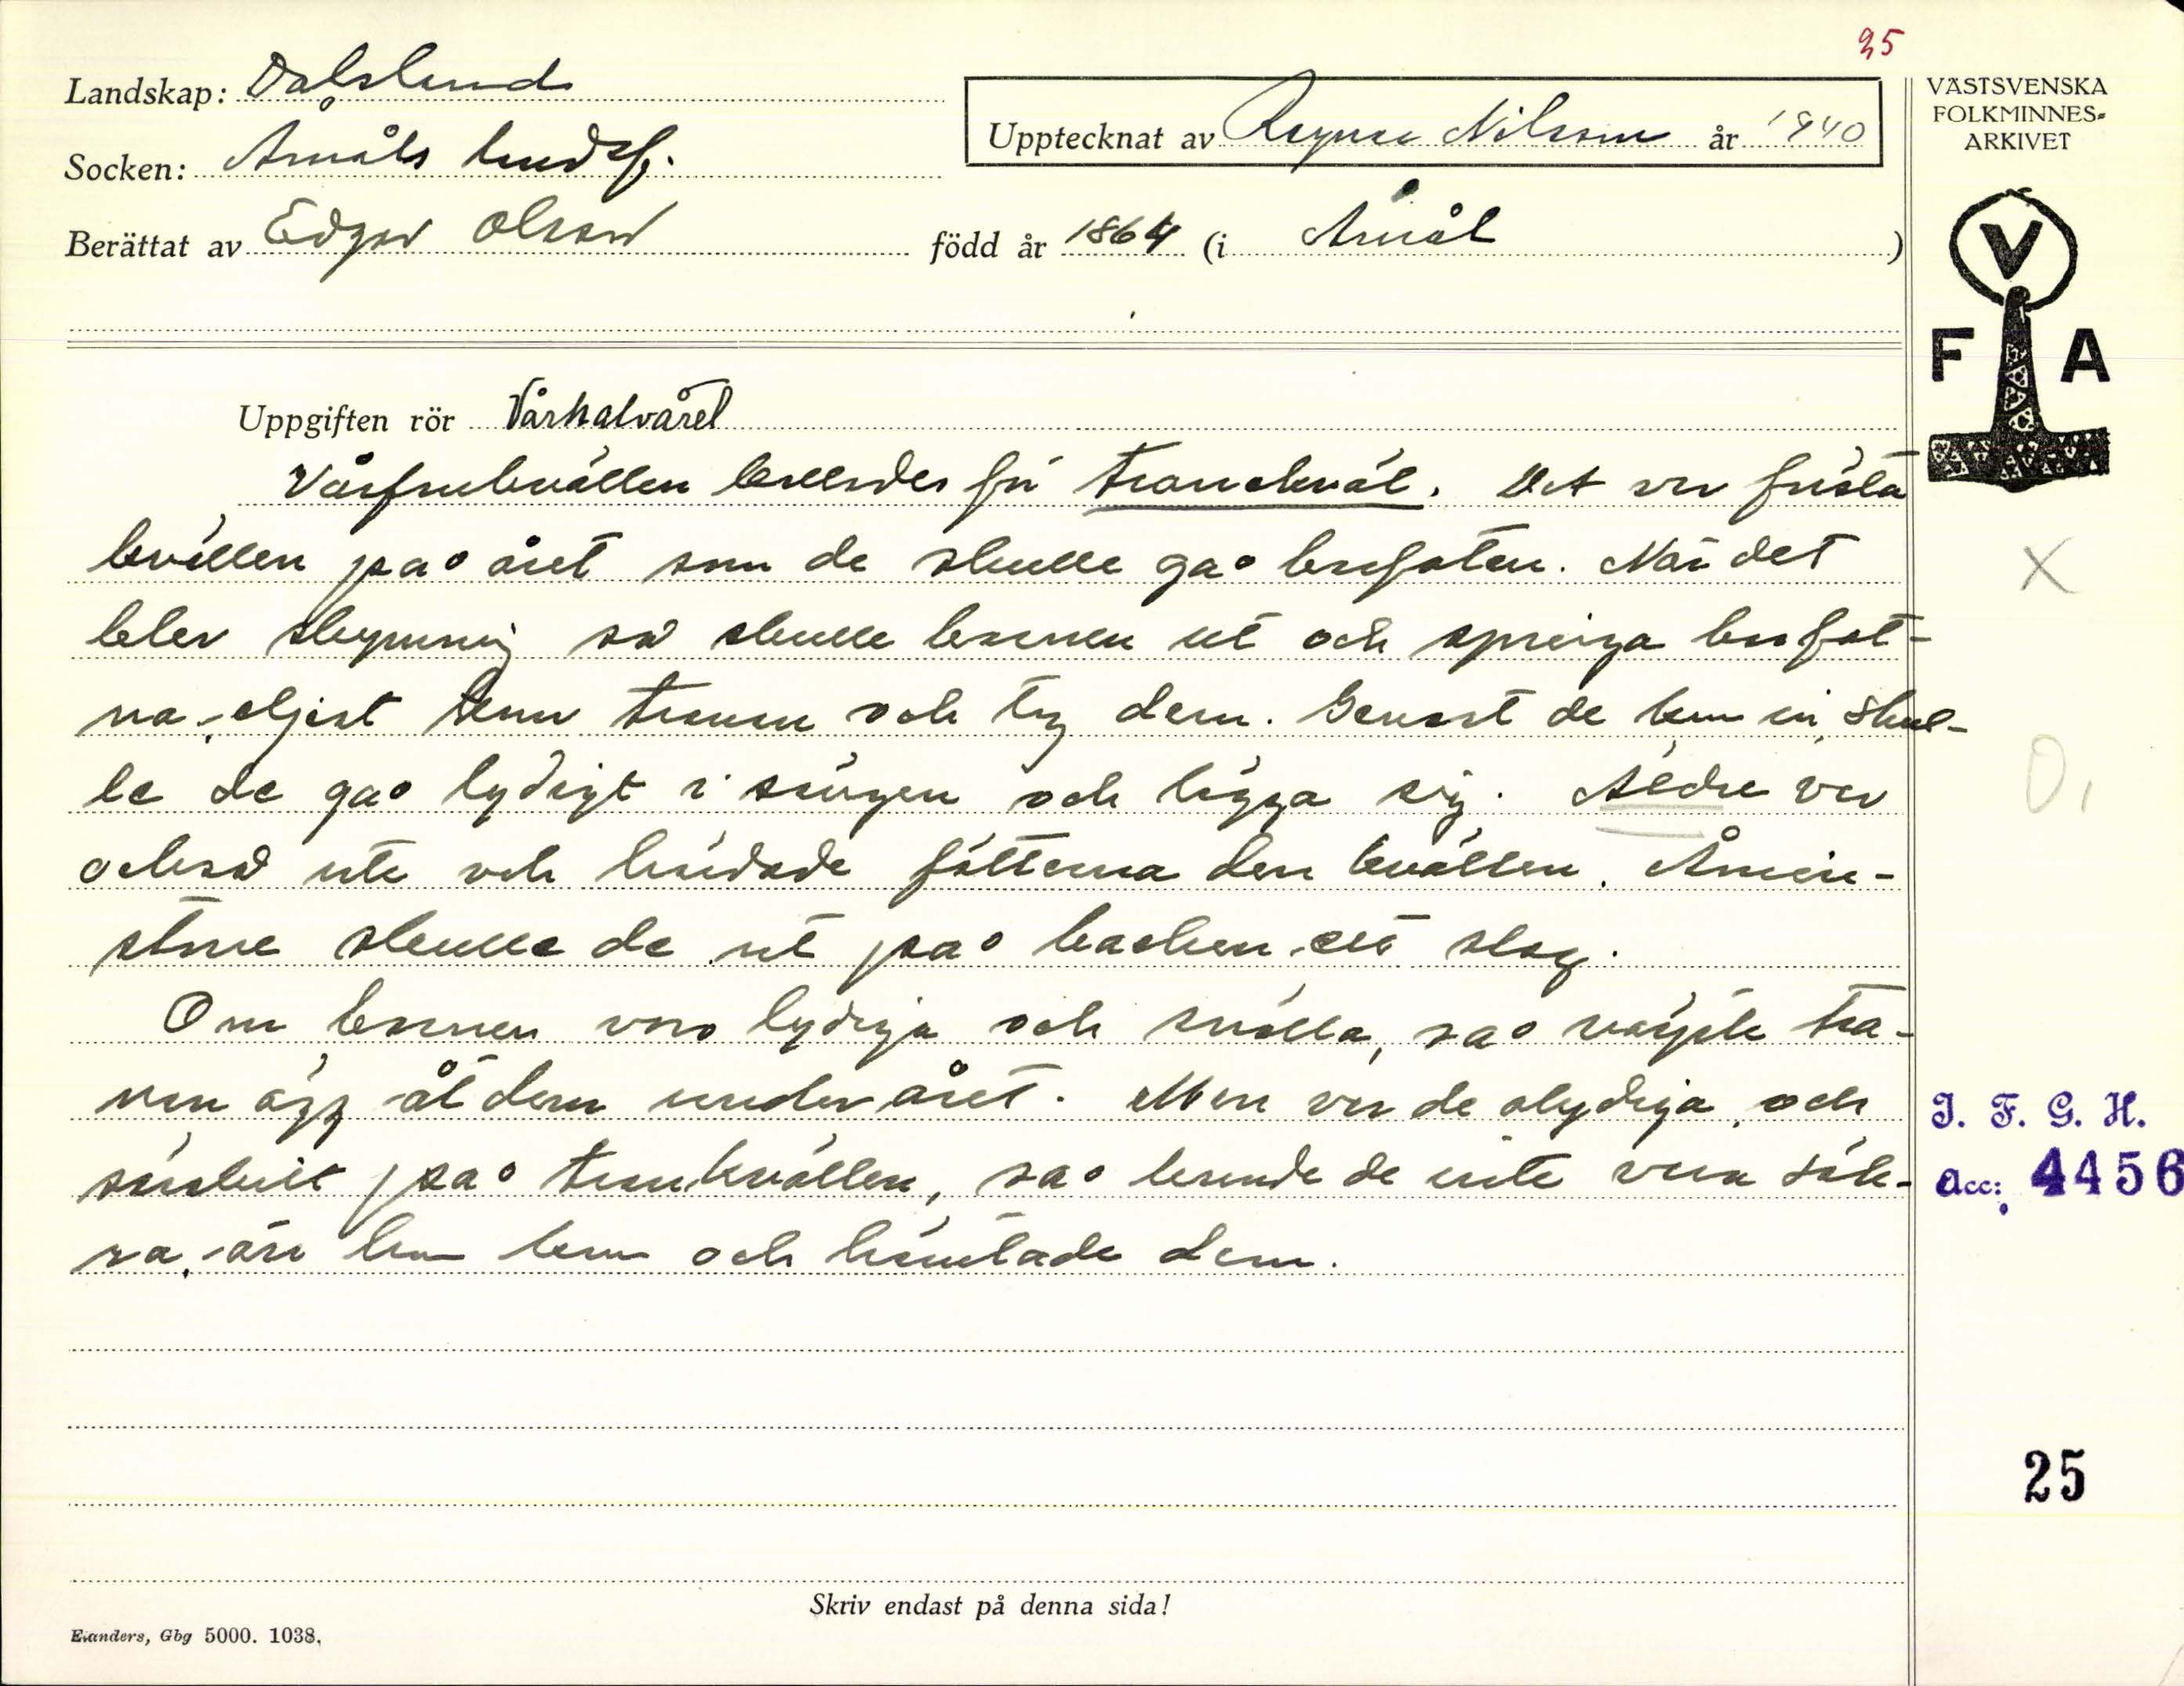 25
Landskap: Dalsland
Socken: Åmåls landsf.
Upptecknat av Ragnar Nilsson år 1940
Berättat av Edgar Olsson född år 1864 (i Åmål )
VÄSTSVENSKA
FOLKMINNES=
ARKIVET
V
F A
Uppgiften rör Vårhalvåret
Vårfrukvällen kallades för tranekväl. Det var första
kvällen på året som de skulle gå barfota. När det
blev skymning så skulle barnen ut och springa barfot-
na, eljest tranan och tog dem. Genast de kom in, skul-
le de gå lydigt i sängen och lägga sig. Äldre var
också ute och härdade fötterna den kvällen. Åmin-
stone skulle de ut på backen ett slag.
Om barnen voro lydiga och snälla, så värpte tra-
nan ägg åt dem under året. Men var de olydiga, och
särskilt på trankvällen, så kunde de inte vara säk-
ra, än kom och hämtade dem.
X
O,
I. F. G. H.
Acc: 4456
25
Skriv endast på denna sida!
Evanders, Gbg 5000. 1038.